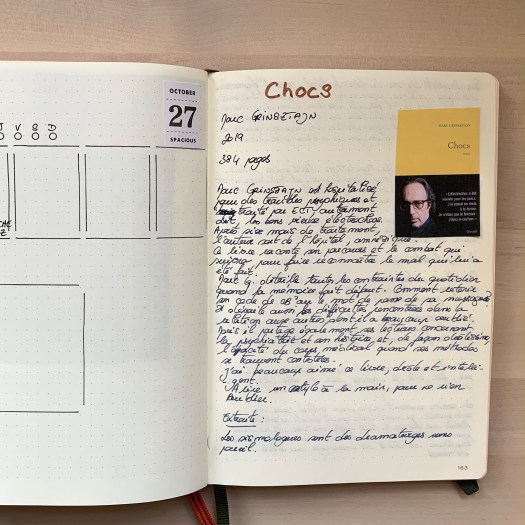 V S D
OCTOBER
27
SPACIOUS
Chocs
Marc GRINSZTAJN
2019
384 pages
Marc GRINSZTAJN est hospitalisé
pour des troubles psychiques et
traité par ECT, autrement
dit, les bons vieux électrochocs.
Après six mois de traitement,
l'auteur sort de l'hôpital, amnésique.
Ce livre raconte son parcours et le combat qui
suivra pour faire reconnaître le mal qui lui a
été fait.
Marc G. détaille toutes les contraintes du quotidien
quand la mémoire fait défaut. Comment retenir
un code de CB ou le mot de passe de sa messagerie
Il décrit aussi les difficultés rencontrées dans la
relation aux autres dont il a beaucoup oublié.
Mais il partage également ses lectures concernant
la psychiatrie et son histoire et, de façon
du corps médical quand ses méthodes
se trouvent contestées.
J'ai beaucoup aimé ce livre, drôle et intelli-
gent.
A lire un stylo à la main, pour ne rien
oublier.
Extraits :
Les sismologues sont des dramaturges sans
pareil.
MARC GRINSZTAJN
Chocs
163